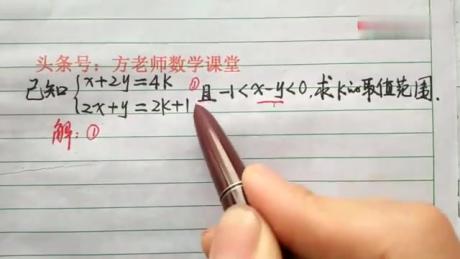 头条号：方老师数学课堂
已知{x+2y=4k ①
{2x+y=2k+1 且-1<x-y<0,求k的取值范围.
解:①